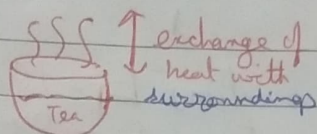 exchange of
heat with
surroundings
Tea